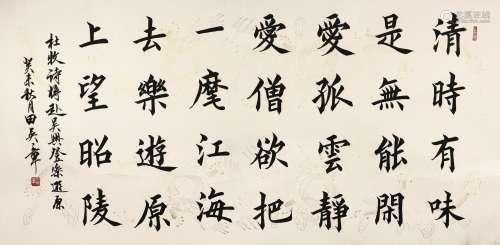 清時有味
是無能閑
愛孤雲靜
愛僧欲把
一麾江海
去樂遊原
上望昭陵
杜牧诗將赴吴興登樂遊原
癸未秋月田英章